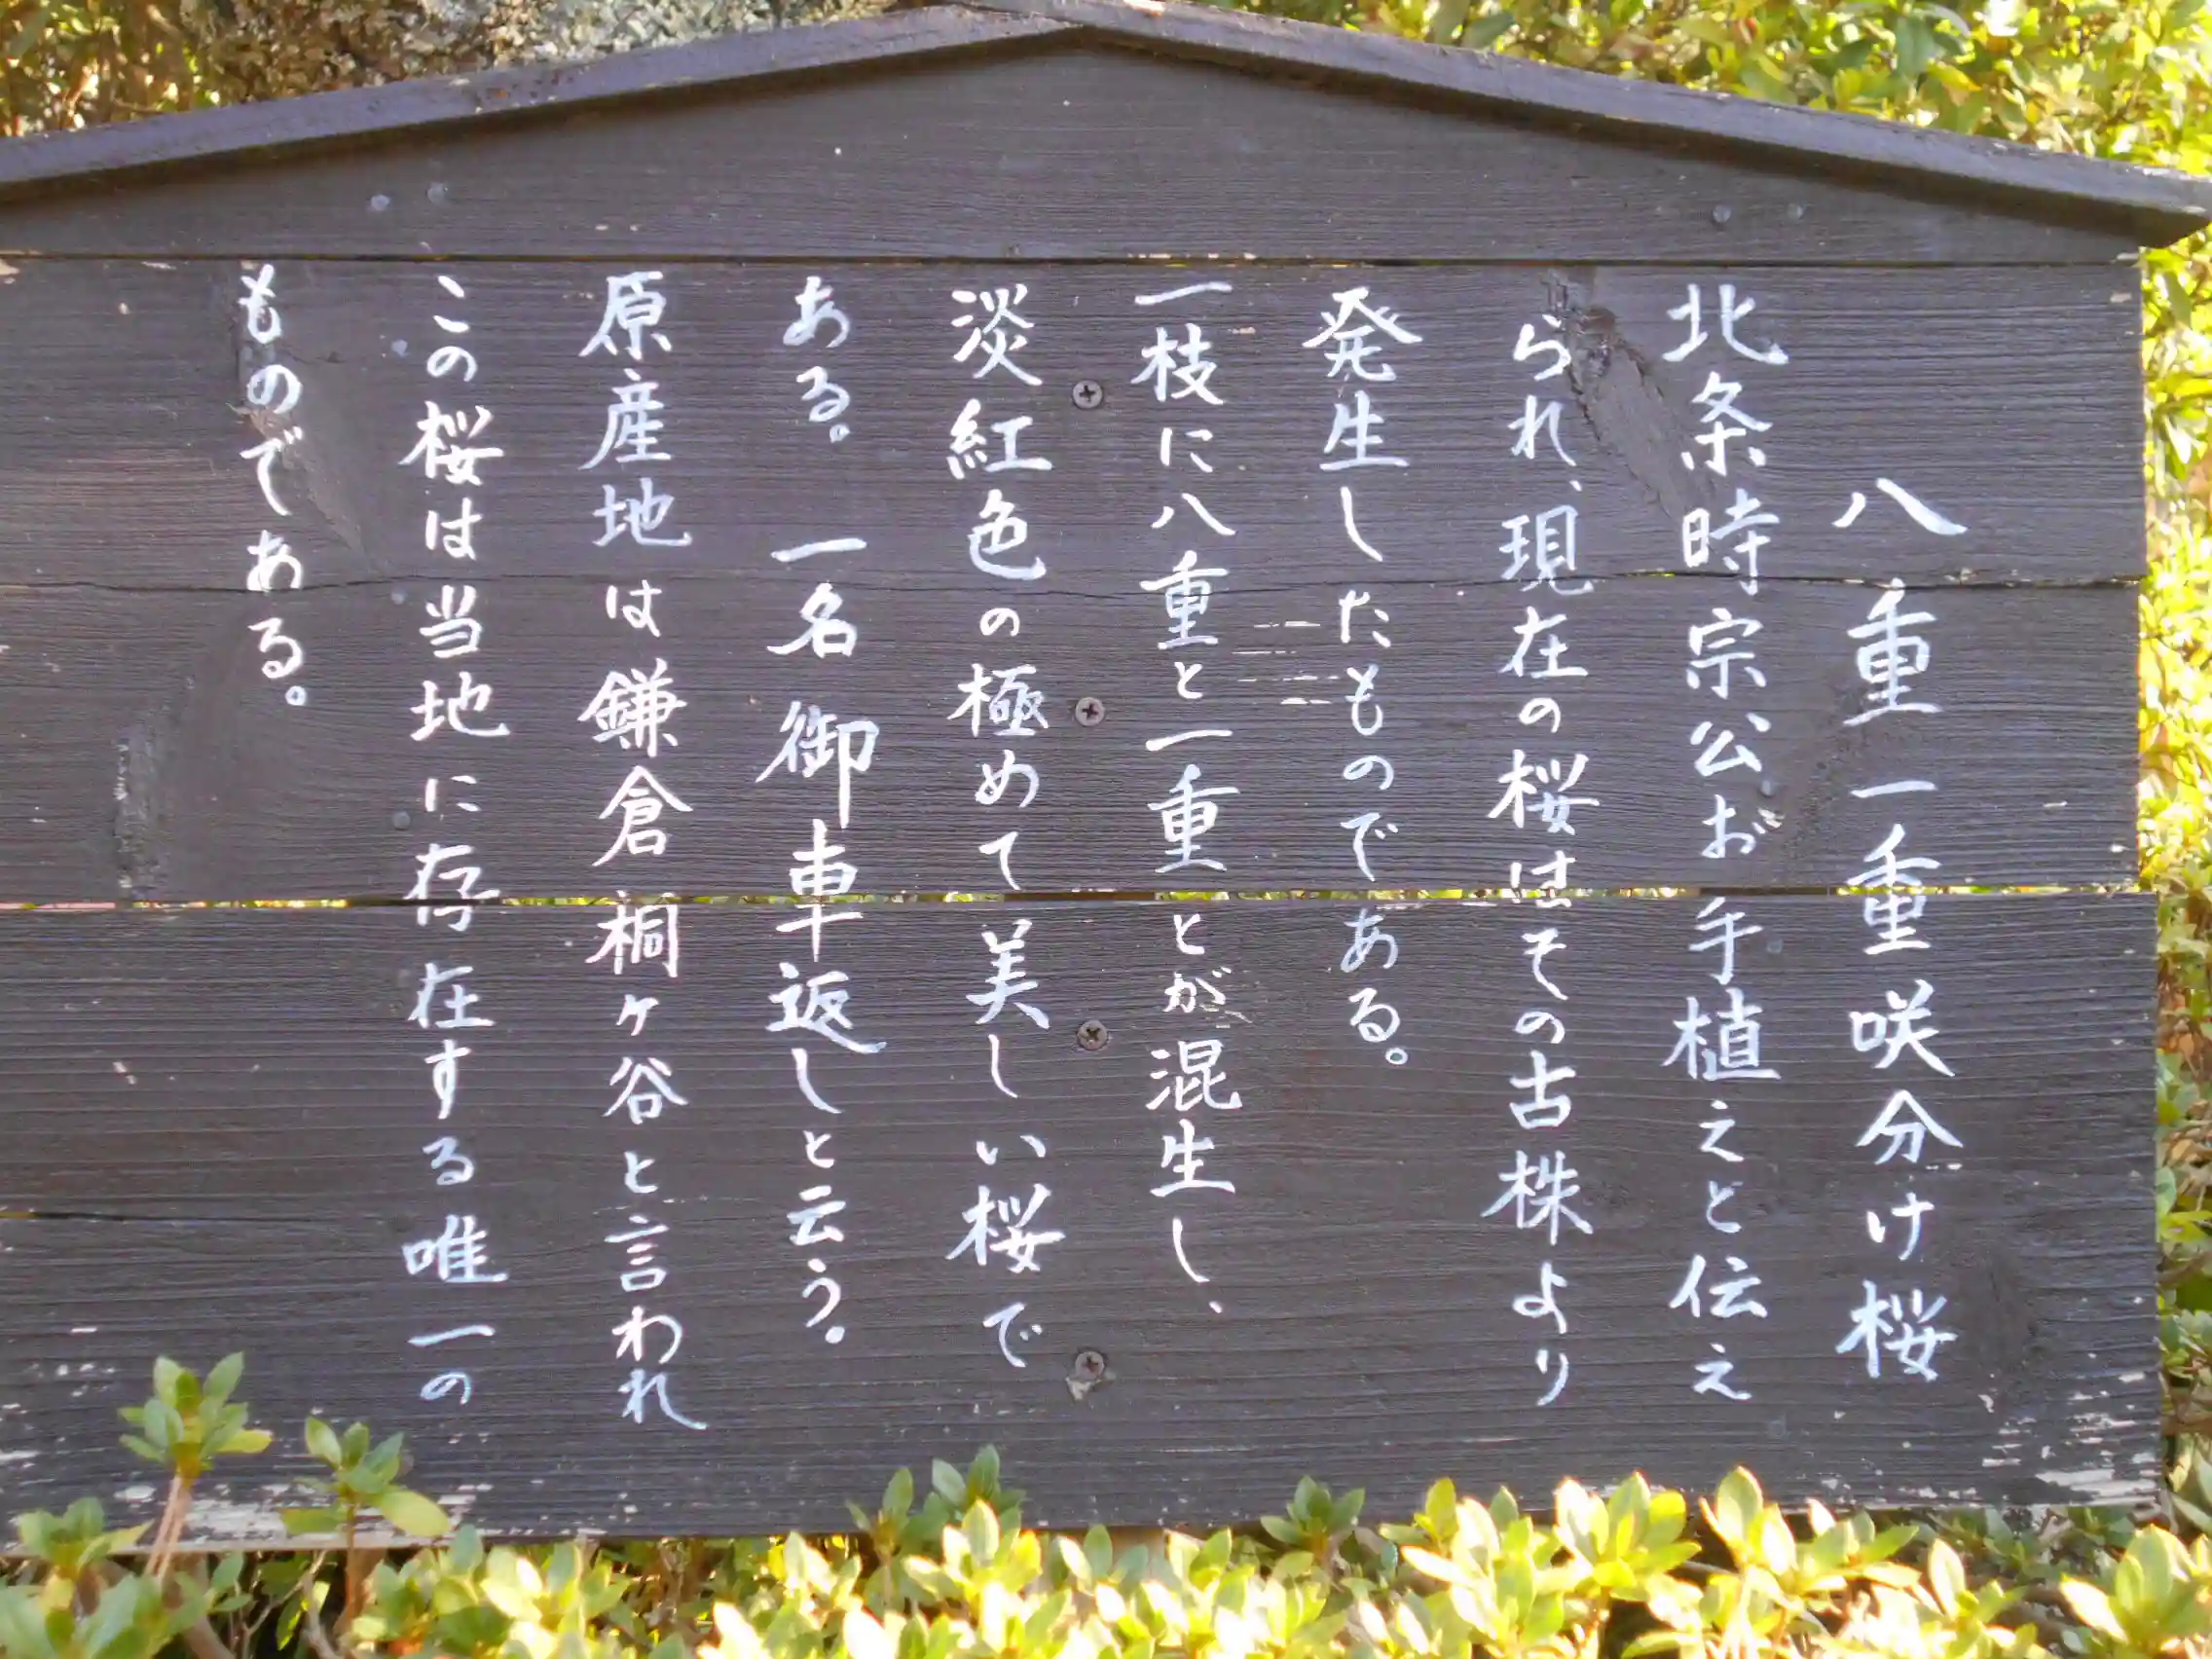 八重一重咲分け桜
北条時宗公お手植えと伝え
られ、現在の桜はその古株より
発生したものである。
一枝に八重と一重とが混生し、
淡紅色の極めて美しい桜で
ある。 一名御車返しと云う。
原産地は鎌倉桐ヶ谷と言われ
この桜は当地に存在する唯一の
ものである。